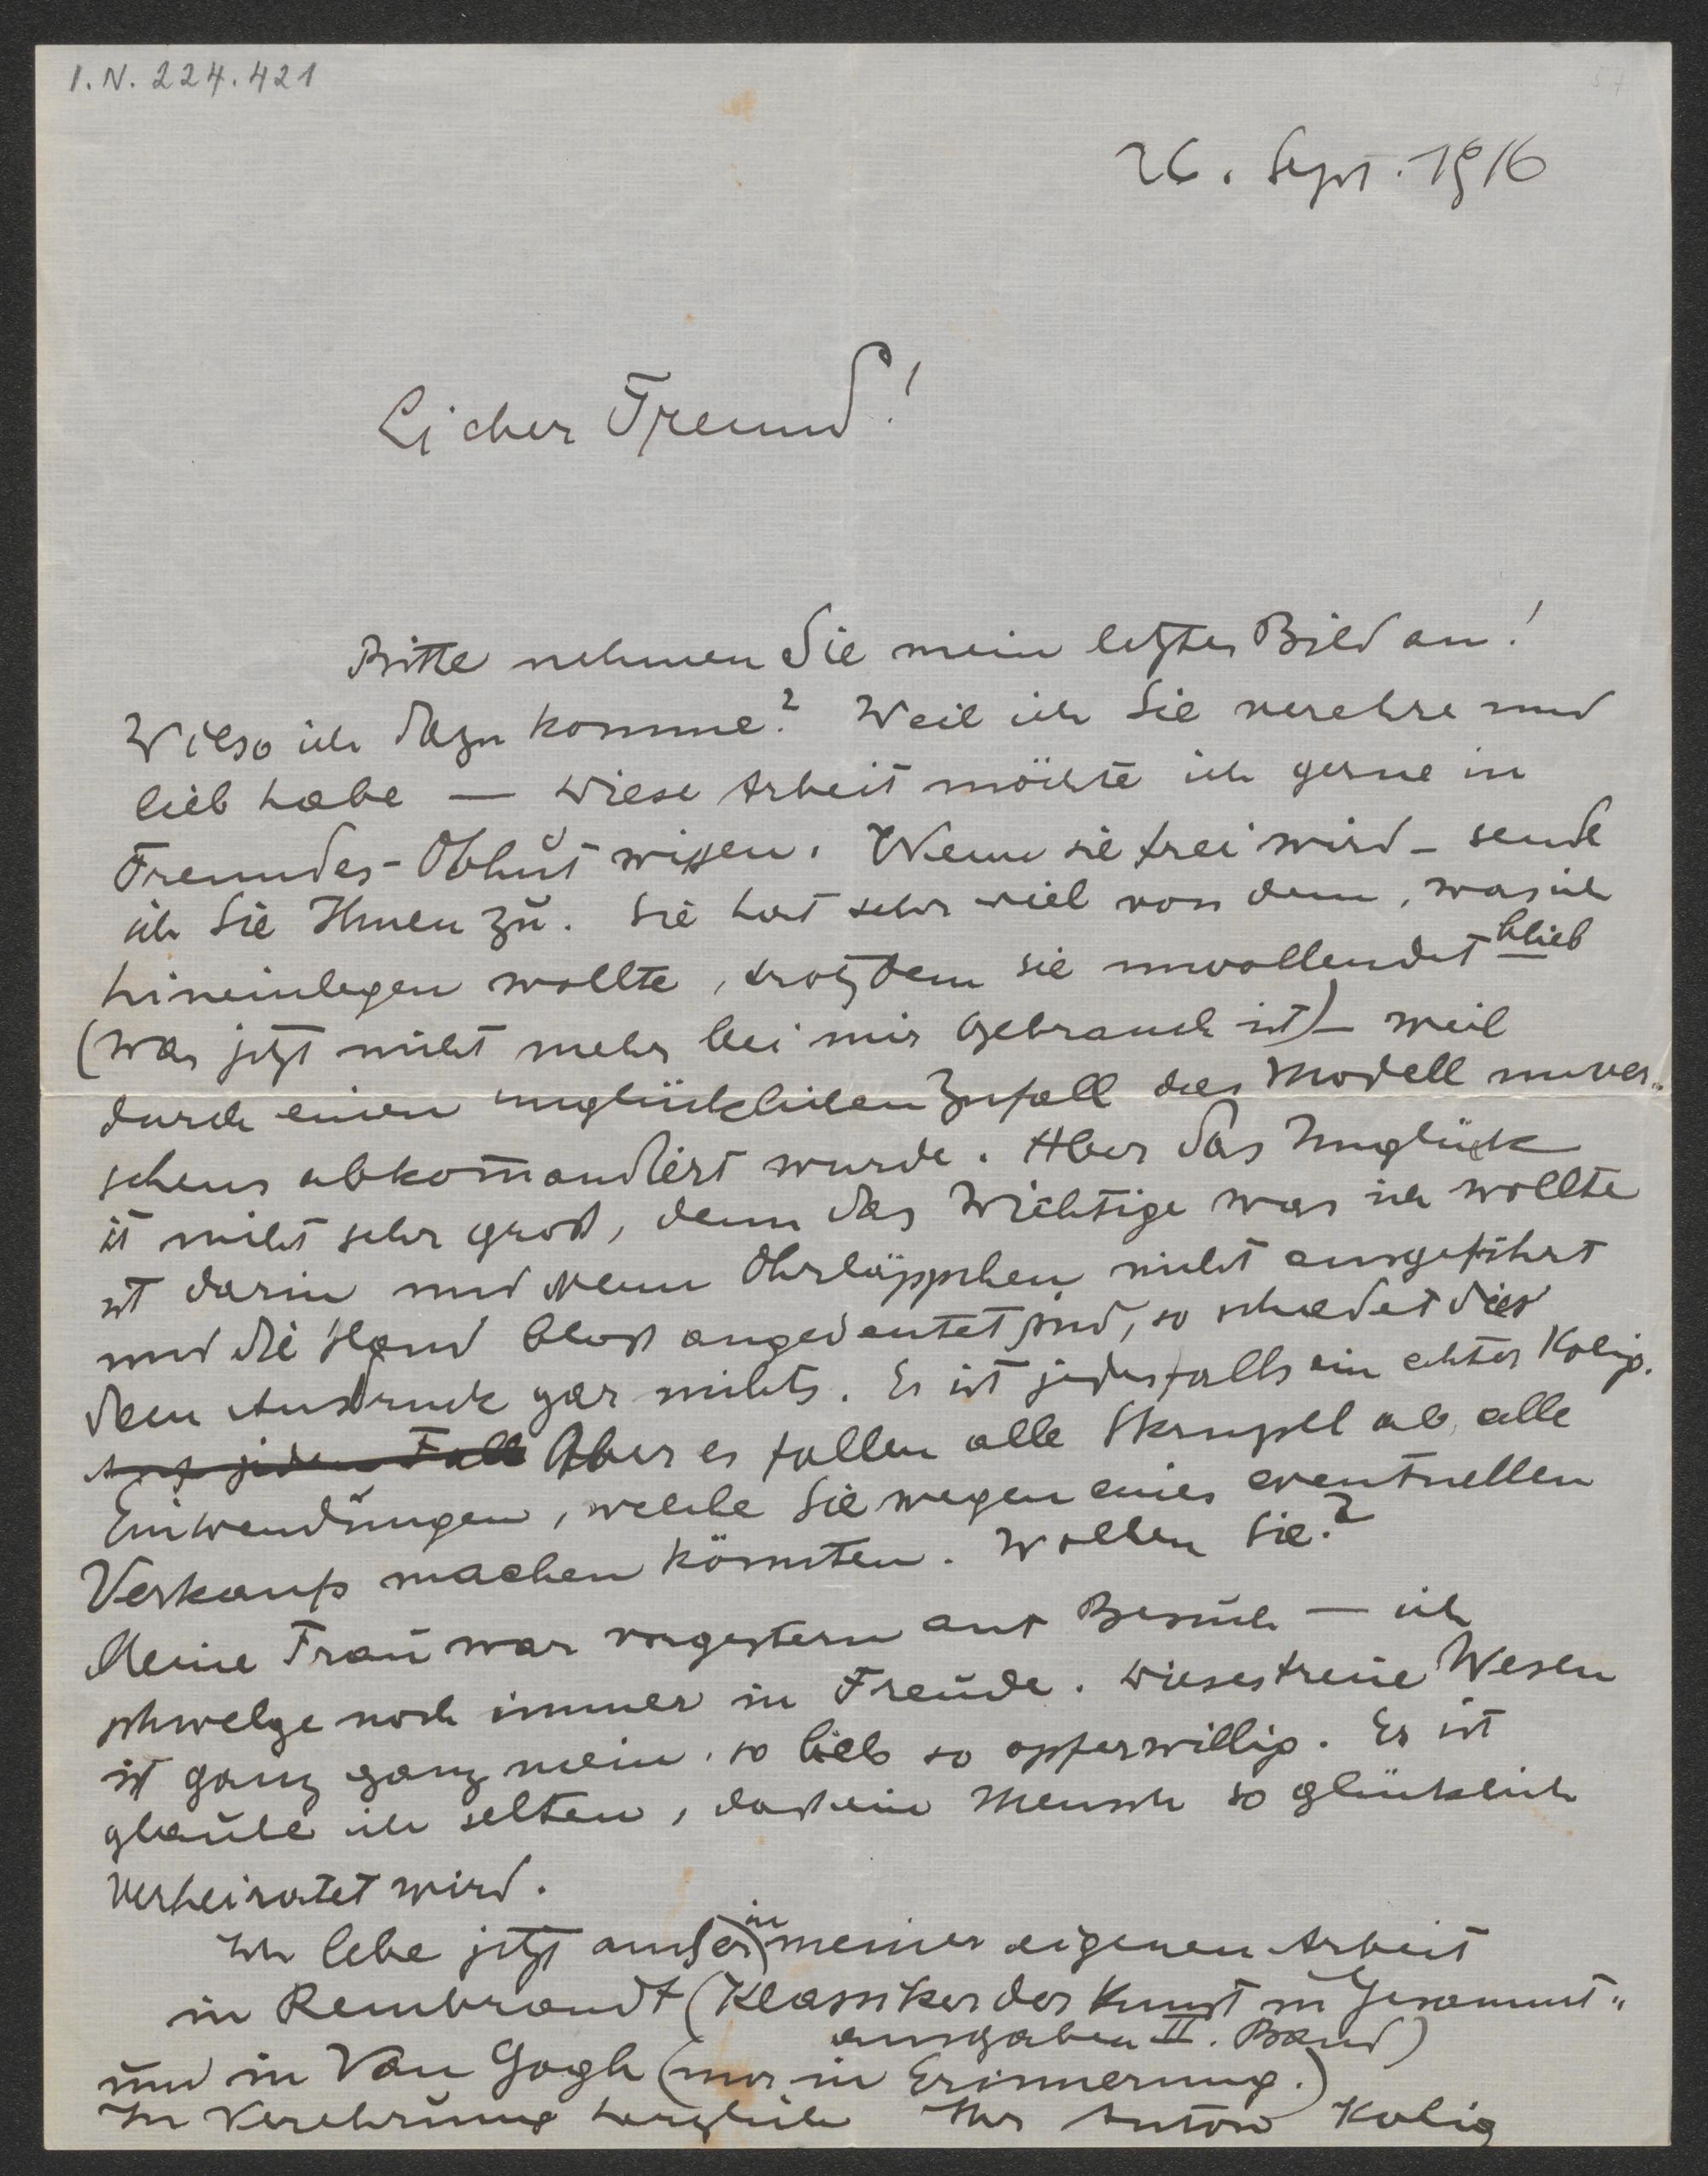 I. N. 224.421
26. Sept. 1916
Lieber Freund!
Bitte nehmen Sie mein letztes Bild an!
Wieso ich dazu komme? Weil ich Sie verehre und
lieb habe — diese Arbeit möchte ich gerne in
Freundes-Obhut wissen. Wenn sie frei wird – sende
ich Sie Ihnen zu. Sie hat sehr viel von dem, was ich
hineinlegen wollte, trotzdem sie unvollendet blieb
(was jetzt nicht mehr bei mir Gebrauch ist) – weil
durch einen unglücklichen Zufall das Modell unver„
sehens abkom̄andiert wurde. Aber das Unglück
ist nicht sehr groß, denn das Wichtige was ich wollte
ist darin und wenn Ohrläppchen nicht ausgeführt
und die Hand bloß angedeutet sind, so schadet dies
dem Ausdruck gar nichts. Es ist jedesfalls ein echter Kolig.
Auf jeden Fall Aber es fallen alle Skrupel ab, alle
Einwendungen, welche Sie wegen eines eventuellen
Verkaufs machen könnten. Wollen Sie?
Meine Frau war vorgestern auf Besuch — ich
schwelge noch immer in Freude. Dieses treue Wesen
ist ganz ganz mein, so lieb so opferwillig. Es ist
glaube ich selten, dass ein Mensch so glücklich
verheiratet wird.
Ich lebe jetzt außer in meiner eigenen Arbeit
in Rembrandt (Klassiker der Kunst in Gesammt„
ausgaben II. Band)
und in Van Gogh (nur in Erinnerung.)
In Verehrung herzlich Ihr Anton Kolig